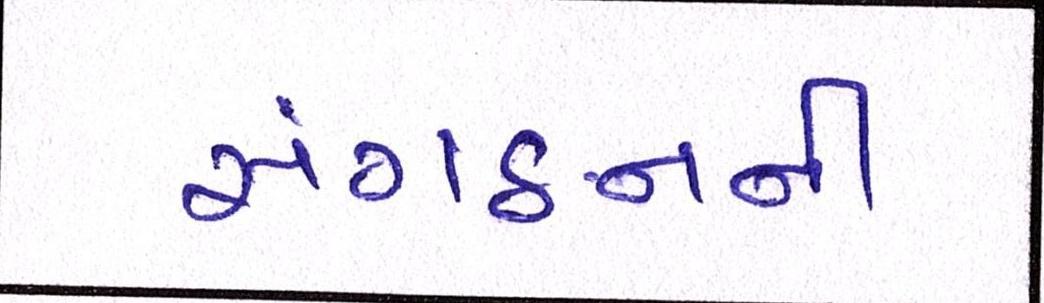 સંગઠનની